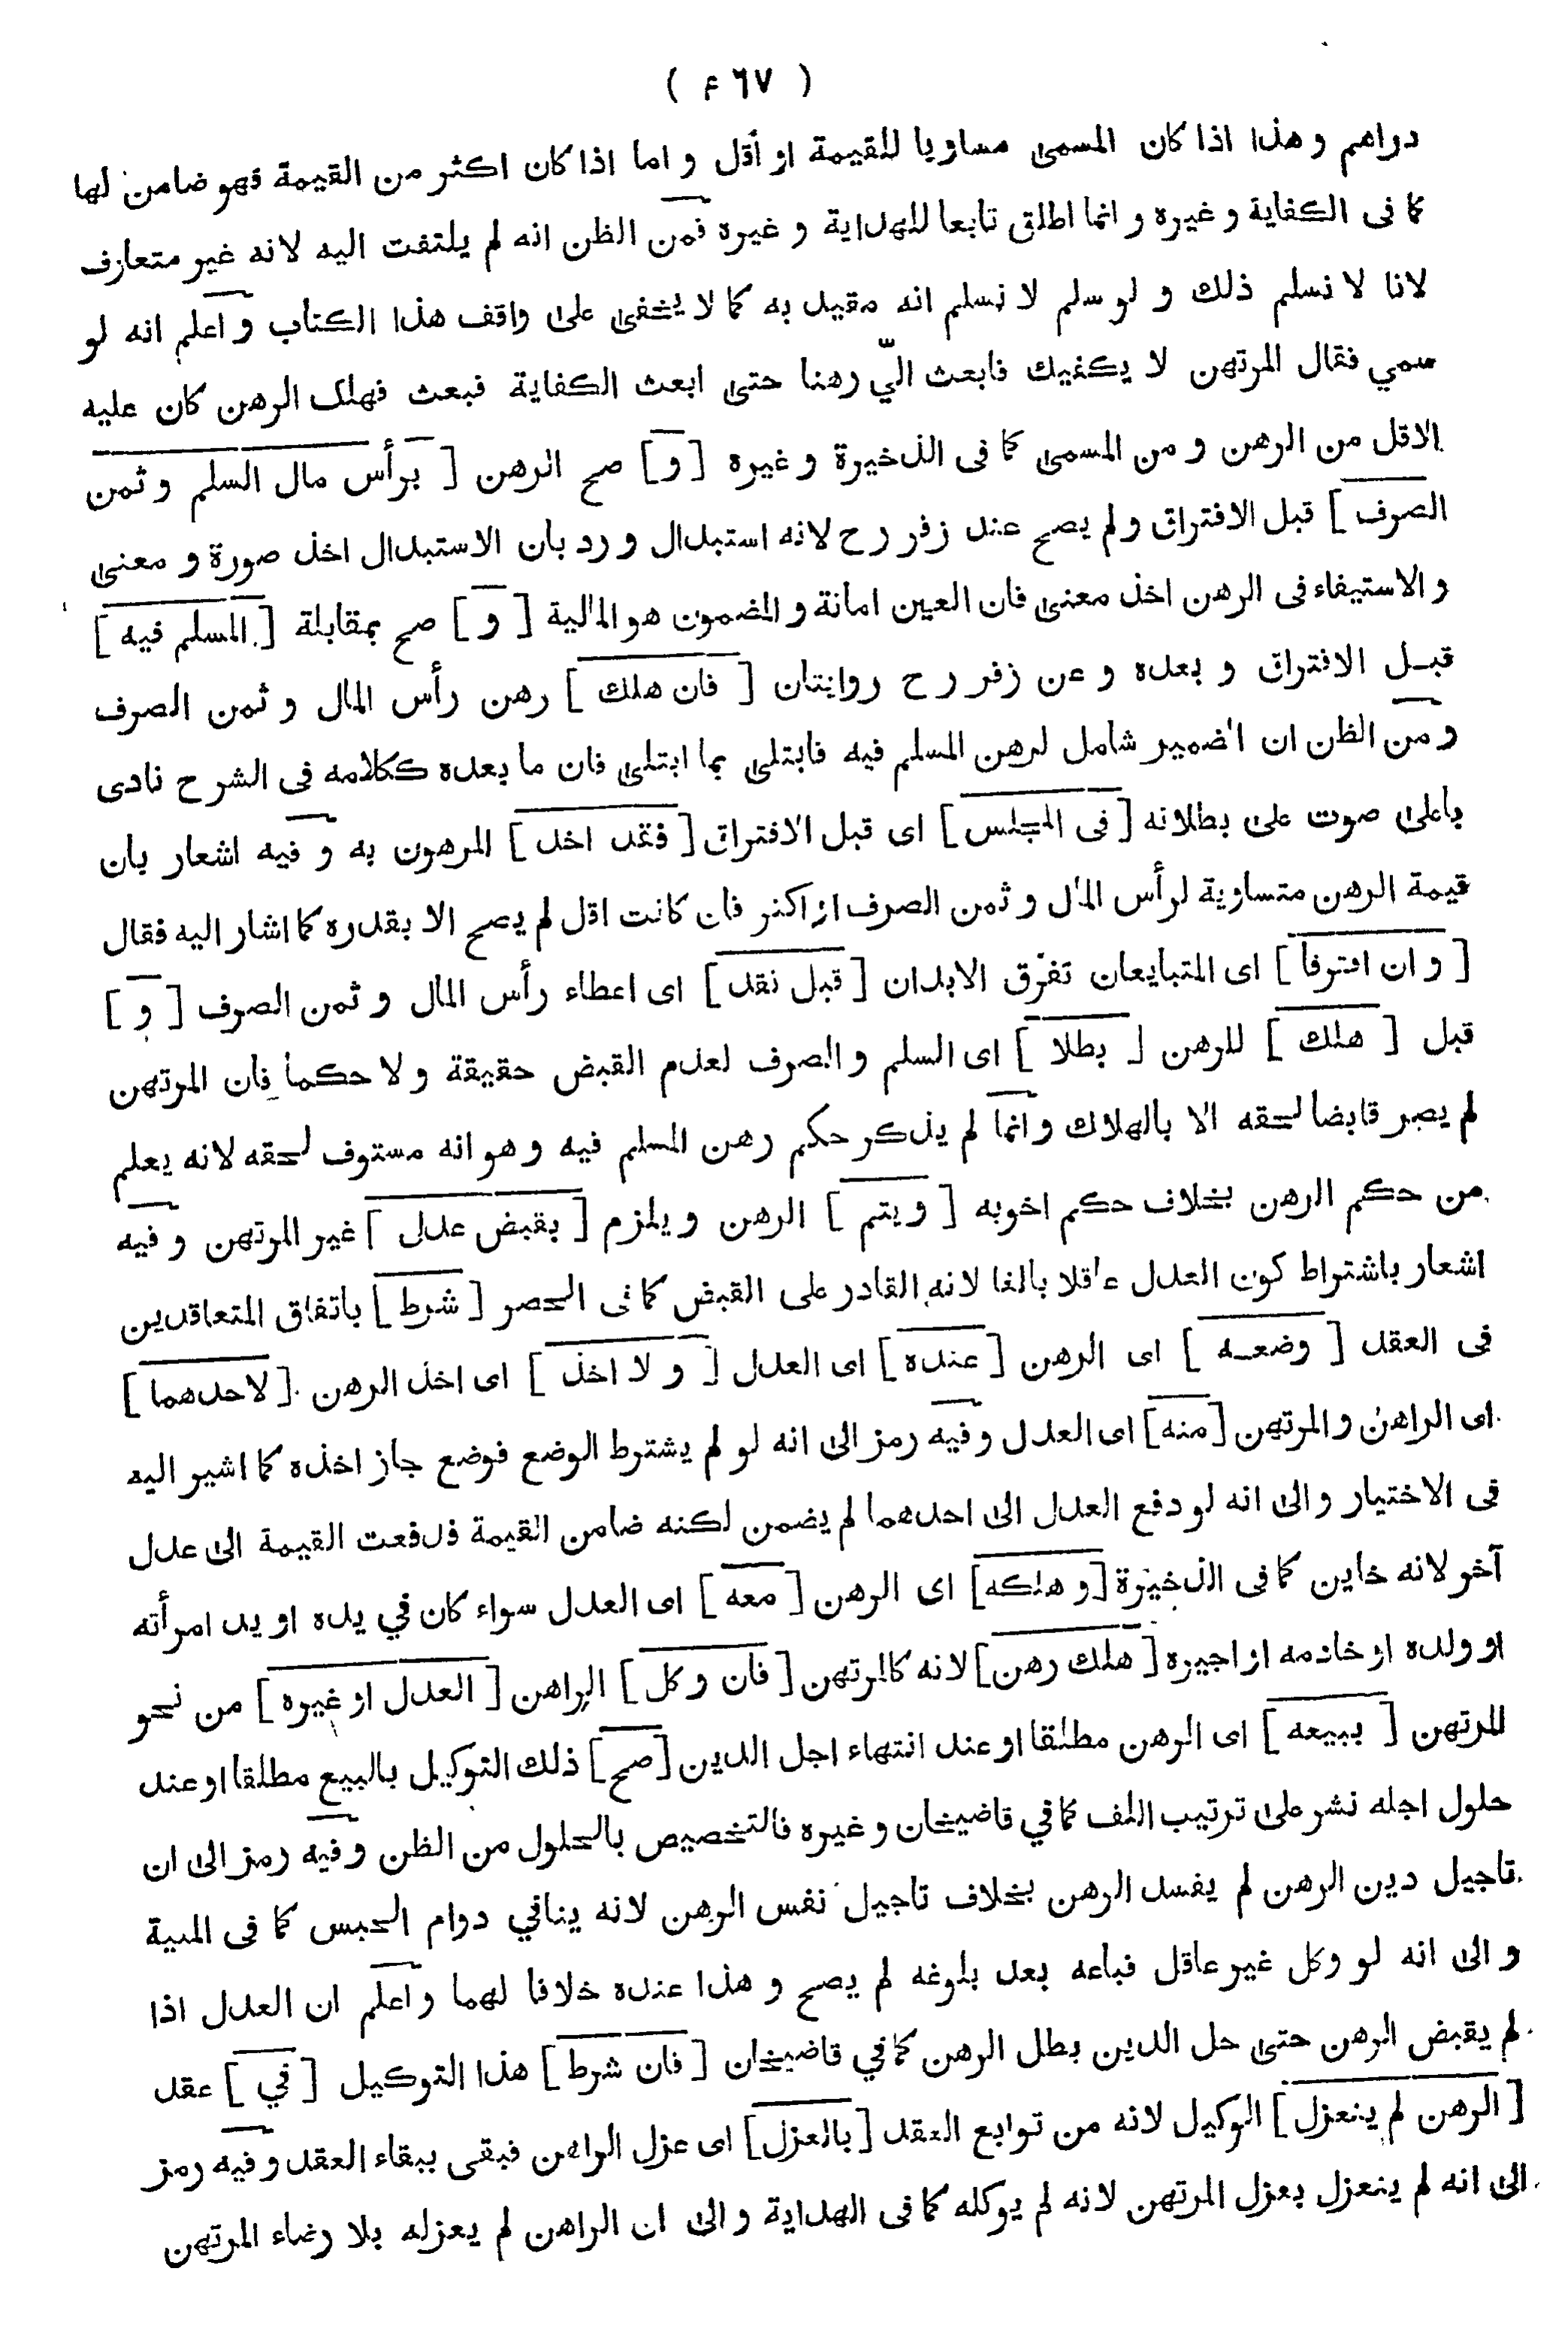 ( ٤٦٧ )
دراهم و هذا اذا كان المسمى مساويا للقيمة او أقل و اما اذا كان اكثر من القيمة فهو ضامن لها
كما فى الكفاية و غيره و انما اطلق تابعا للهداية و غيره فمن الظن انه لم يلتفت اليه لانه غير متعارف
لانا لا نسلم ذلك و لو سلم لا نسلم انه مقيد به كما لا يخفى على واقف هذا الكتاب و اعلم انه لو
سمي فقال المرتهن لا يكفيك فابعث اليّ رهنا حتى ابعث الكفاية فبعث فهلك الرهن كان عليه
الاقل من الرهن و من المسمى كما فى الذخيرة و غيره [ و ] صح الرهن [ برأس مال السلم و ثمن
الصرف ] قبل الافتراق و لم يصح عند زفر رح لانه استبدال و رد بان الاستبدال اخذ صورة و معنى
و الاستيفاء فى الرهن اخذ معنى فان العين امانة و المضمون هو المالية [ و ] صح بمقابلة [ المسلم فيه ]
قبل الافتراق و بعده و عن زفر رح روايتان [ فان هلك ] رهن رأس المال و ثمن الصرف
و من الظن ان الضمير شامل لرهن المسلم فيه فابتلى بما ابتلى فان ما بعده ككلامه فى الشرح نادى
باعلى صوت على بطلانه [ فى المجلس ] اى قبل الافتراق [ فقد اخذ ] المرهون به و فيه اشعار بان
قيمة الرهن متساوية لرأس المال و ثمن الصرف او اكثر فان كانت اقل لم يصح الا بقدره كما اشار اليه فقال
[ و ان افترقا ] اى المتبايعان تفرّق الابدان [ قبل نقد ] اى اعطاء رأس المال و ثمن الصرف [ و ]
قبل [ هلك ] للرهن [ بطلا ] اى السلم و الصرف لعدم القبض حقيقة و لا حكما فان المرتهن
لم يصر قابضا لحقه الا بالهلاك و انما لم يذكر حكم رهن المسلم فيه و هو انه مستوف لحقه لانه يعلم
من حكم الرهن بخلاف حكم اخويه [ و يتم ] الرهن و يلزم [ بقبض عدل ] غير المرتهن و فيه
اشعار باشتراط كون العدل عاقلا بالغا لانه القادر على القبض كما فى الحصر [ شرط ] باتفاق المتعاقدين
فى العقد [ وضعه ] اى الرهن [ عنده ] اى العدل [ و لا اخذ ] اى اخذ الرهن [ لاحدهما ]
اى الراهن و المرتهن [ منه ] اى العدل و فيه رمز الى انه لو لم يشترط الوضع فوضع جاز اخذه كما اشير اليه
فى الاختيار و الى انه لو دفع العدل الى احدهما لم يضمن لكنه ضامن القيمة فدفعت القيمة الى عدل
آخر لانه خاين كما فى الذخيرة [ و هلكه ] اى الرهن [ معه ] اى العدل سواء كان في يده او يد امرأته
او ولده او خادمه او اجيره [ هلك رهن ] لانه كالمرتهن [ فان وكل ] الراهن [ العدل او غيره ] من نحو
المرتهن [ ببيعه ] اى الرهن مطلقا او عند انتهاء اجل الدين [ صح ] ذلك التوكيل بالبيع مطلقا او عند
حلول اجله نشر على ترتيب اللف كما في قاضيخان و غيره فالتخصيص بالحلول من الظن و فيه رمز الى ان
تاجيل دين الرهن لم يفسد الرهن بخلاف تاجيل نفس الرهن لانه ينافي دوام الحبس كما فى المنية
و الى انه لو وكل غير عاقل فباعه بعد بلوغه لم يصح و هذا عنده خلافا لهما و اعلم ان العدل اذا
لم يقبض الرهن حتى حل الدين بطل الرهن كما في قاضيخان [ فان شرط ] هذا التوكيل [ في ] عقد
[ الرهن لم ينعزل ] الوكيل لانه من توابع العقد [ بالعزل ] اى عزل الراهن فبقى ببقاء العقد و فيه رمز
الى انه لم ينعزل بعزل المرتهن لانه لم يوكله كما فى الهداية و الى ان الراهن لم يعزله بلا رضاء المرتهن